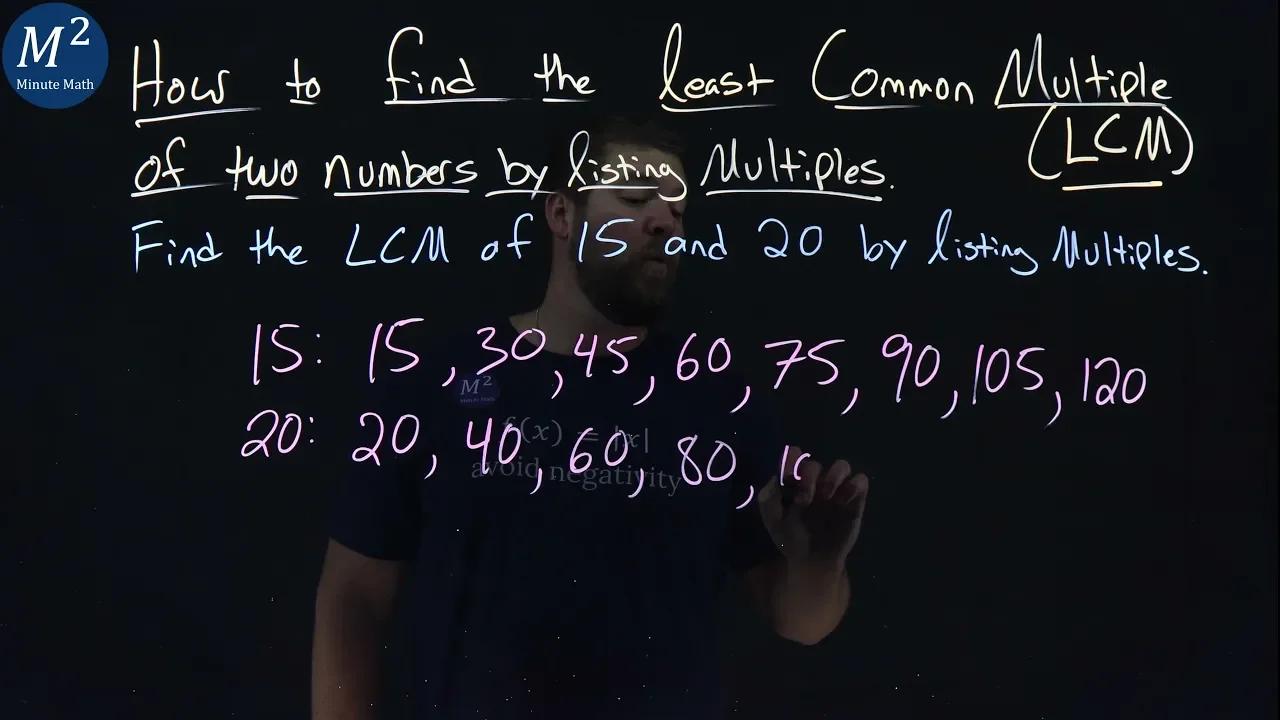 M²
Minute Math
How to find the least Common Multiple
(LCM)
of two numbers by listing Multiples.
Find the LCM of 15 and 20 by listing Multiples.
15: 15, 30, 45, 60, 75, 90, 105, 120
M²
Minute Math
20: 20, 40, 60, 80, 10
f(x) = |x|
avoid negativity